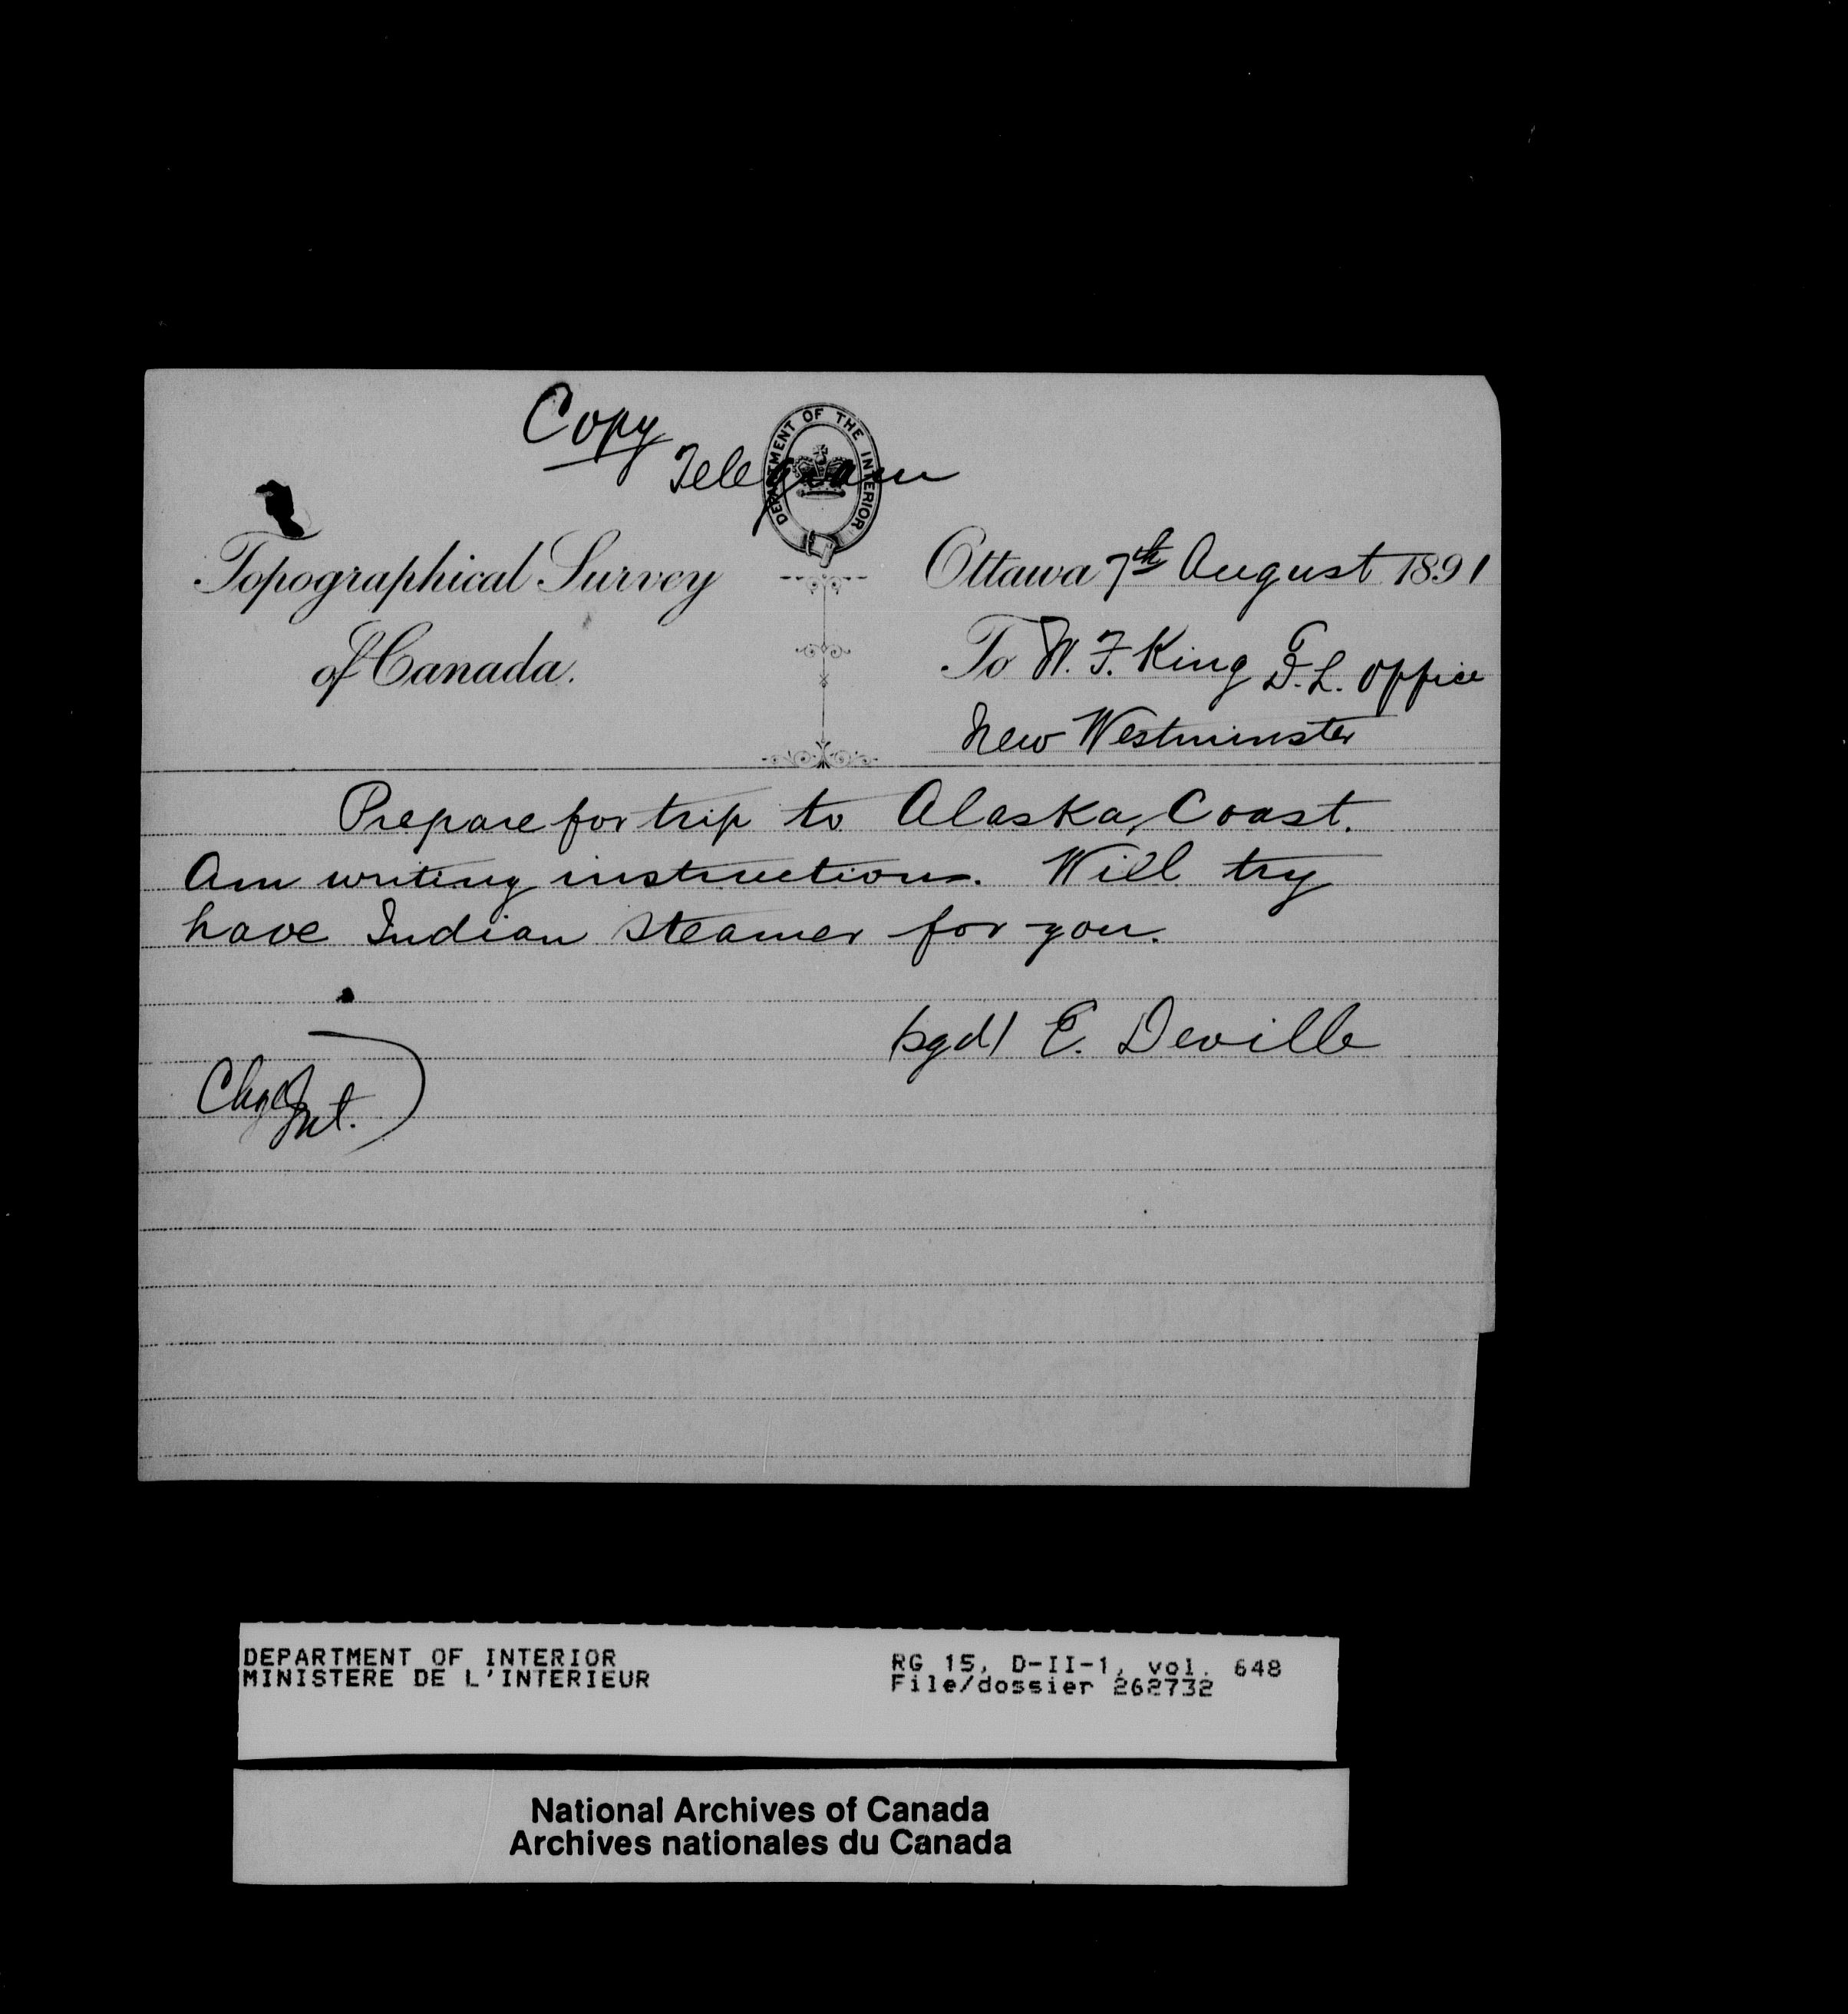 Copy
Telegram
DEPARTMENT OF THE INTERIOR
Topographical Survey
of Canada.
Ottawa 7th August 1891
To W. F. King D.L. Office
New Westminster
Prepare for trip to Alaska Coast.
Am writing instructions. Will try
have Indian steamer for you.
(sgd) E. Deville
Chge Int.
DEPARTMENT OF INTERIOR
MINISTERE DE L'INTERIEUR
RG 15, D-II-1, vol. 648
File/dossier 262732
National Archives of Canada
Archives nationales du Canada